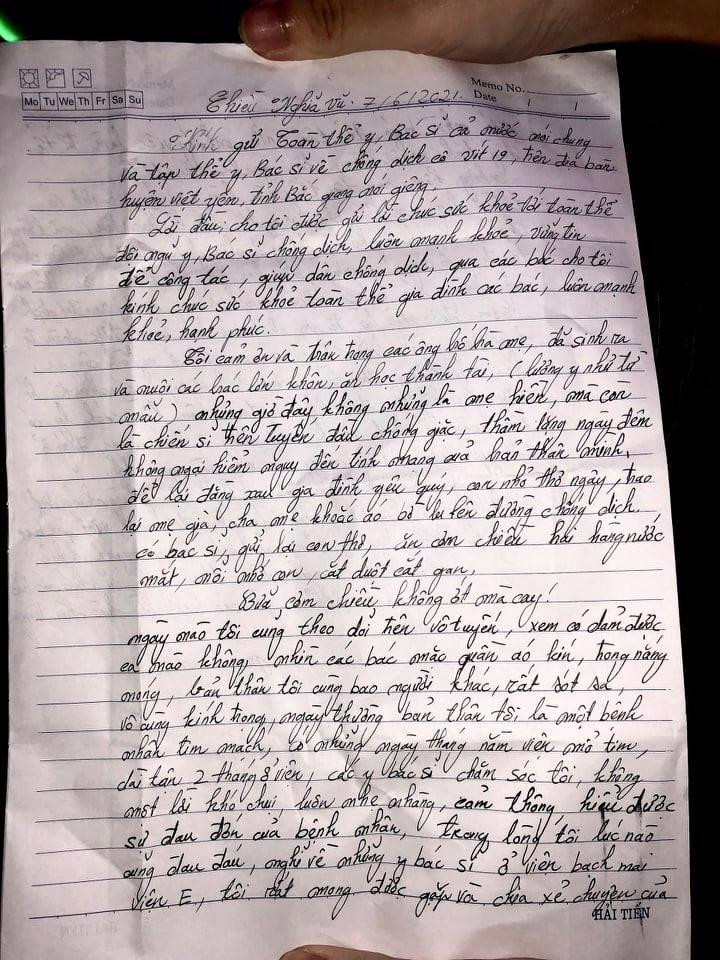 Memo No.
Mo Tu We Th Fr Sa Su
Date / /
Chiều Nghĩa vụ. 7/6/2021.
Kính gửi Toàn thể y, Bác sĩ cả nước nói chung
và tập thể y, Bác sĩ về chống dịch cô vít 19, trên địa bàn
huyện việt yên, tỉnh Bắc giang nói giêng.
Lời đầu, cho tôi được gửi lời chúc sức khoẻ tới toàn thể
đội ngũ y, Bác sĩ chống dịch, luôn mạnh khoẻ, vững tin
để công tác, giup dân chống dịch, qua các bác cho tôi
kính chúc sức khoẻ toàn thể gia đình các bác, luôn mạnh
khoẻ, hạnh phúc.
Tôi cảm ơn và trân trọng các ông bố bà mẹ, đã sinh ra
và nuôi các bác lớn khôn, ăn học thành tài, (lương y như từ
mẫu) nhưng giờ đây không những là mẹ hiền, mà còn
là chiến sĩ tiền tuyến đầu chống giặc, thầm lặng ngày đêm
không ngại hiểm nguy đến tính mang của bản thân mình,
để lại đằng xau gia đình yêu quý, con nhỏ thơ ngây, trao
lại mẹ già, cha mẹ khoác áo bờ lu lên đường chống dịch.
có bác sĩ, gửi lại con thơ, ăn cơm chiều hai hàng nước
mắt, mỗi nhớ con, cắt duột cắt gan,
Bữa cơm chiều không ớt mà cay!
ngày nào tôi cũng theo dõi trên vô tuyến, xem có dảm được
ca nào không, nhìn các bác mặc quần aó kín, trong nắng
nóng, bản thân tôi cùng bao người khác, rất sót sa,
vô cùng kính trọng, ngày thường bản thân tôi là một bệnh
nhân tim mạch, có những ngày tháng nằm viện mổ tim,
dài tận 2 tháng ở viện, các y bác sĩ chăm sóc tôi, không
một lời khó chiu, luôn nhẹ nhàng, cảm thông, hiểu được
sự đau đớn của bệnh nhân, trong lòng tôi lúc nào
cũng đau đáu, nghĩ về những y bác sĩ ở viện bạch mai
viện E, tôi rất mong được gặp và chia xẻ chuyện của
HẢI TIẾN